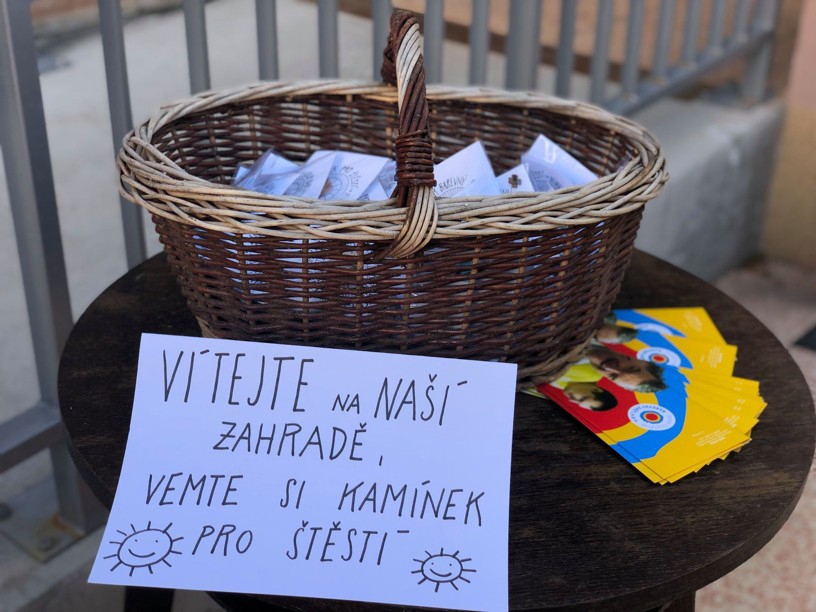 VÍTEJTE NA NAŠÍ
ZAHRADĚ,
VEMTE SI KAMÍNEK
PRO ŠTĚSTÍ